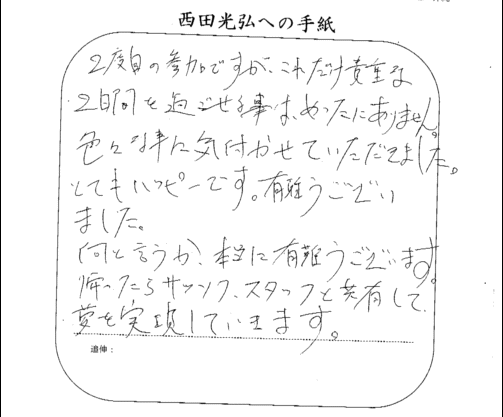 西田光弘への手紙
2度目の参加ですが、これだけ貴重な
2日間を過ごせる事は、めったにありません。
色々な事に気付かせていただきました。
とてもハッピーです。有難うござい
ました。
何と言うか、本当に有難うございます。
帰ったらサッソク、スタッフと共有して、
夢を実現していきます。
追伸: